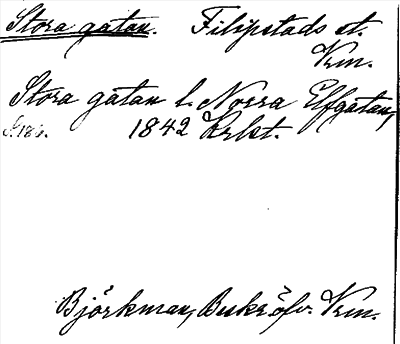 Stora gatan. Filipstads st.
Vrm.
Stora gatan l. Norra Elfgatan,
1842 Krkt.
Björkman, Beskr. öfv. Vrm.